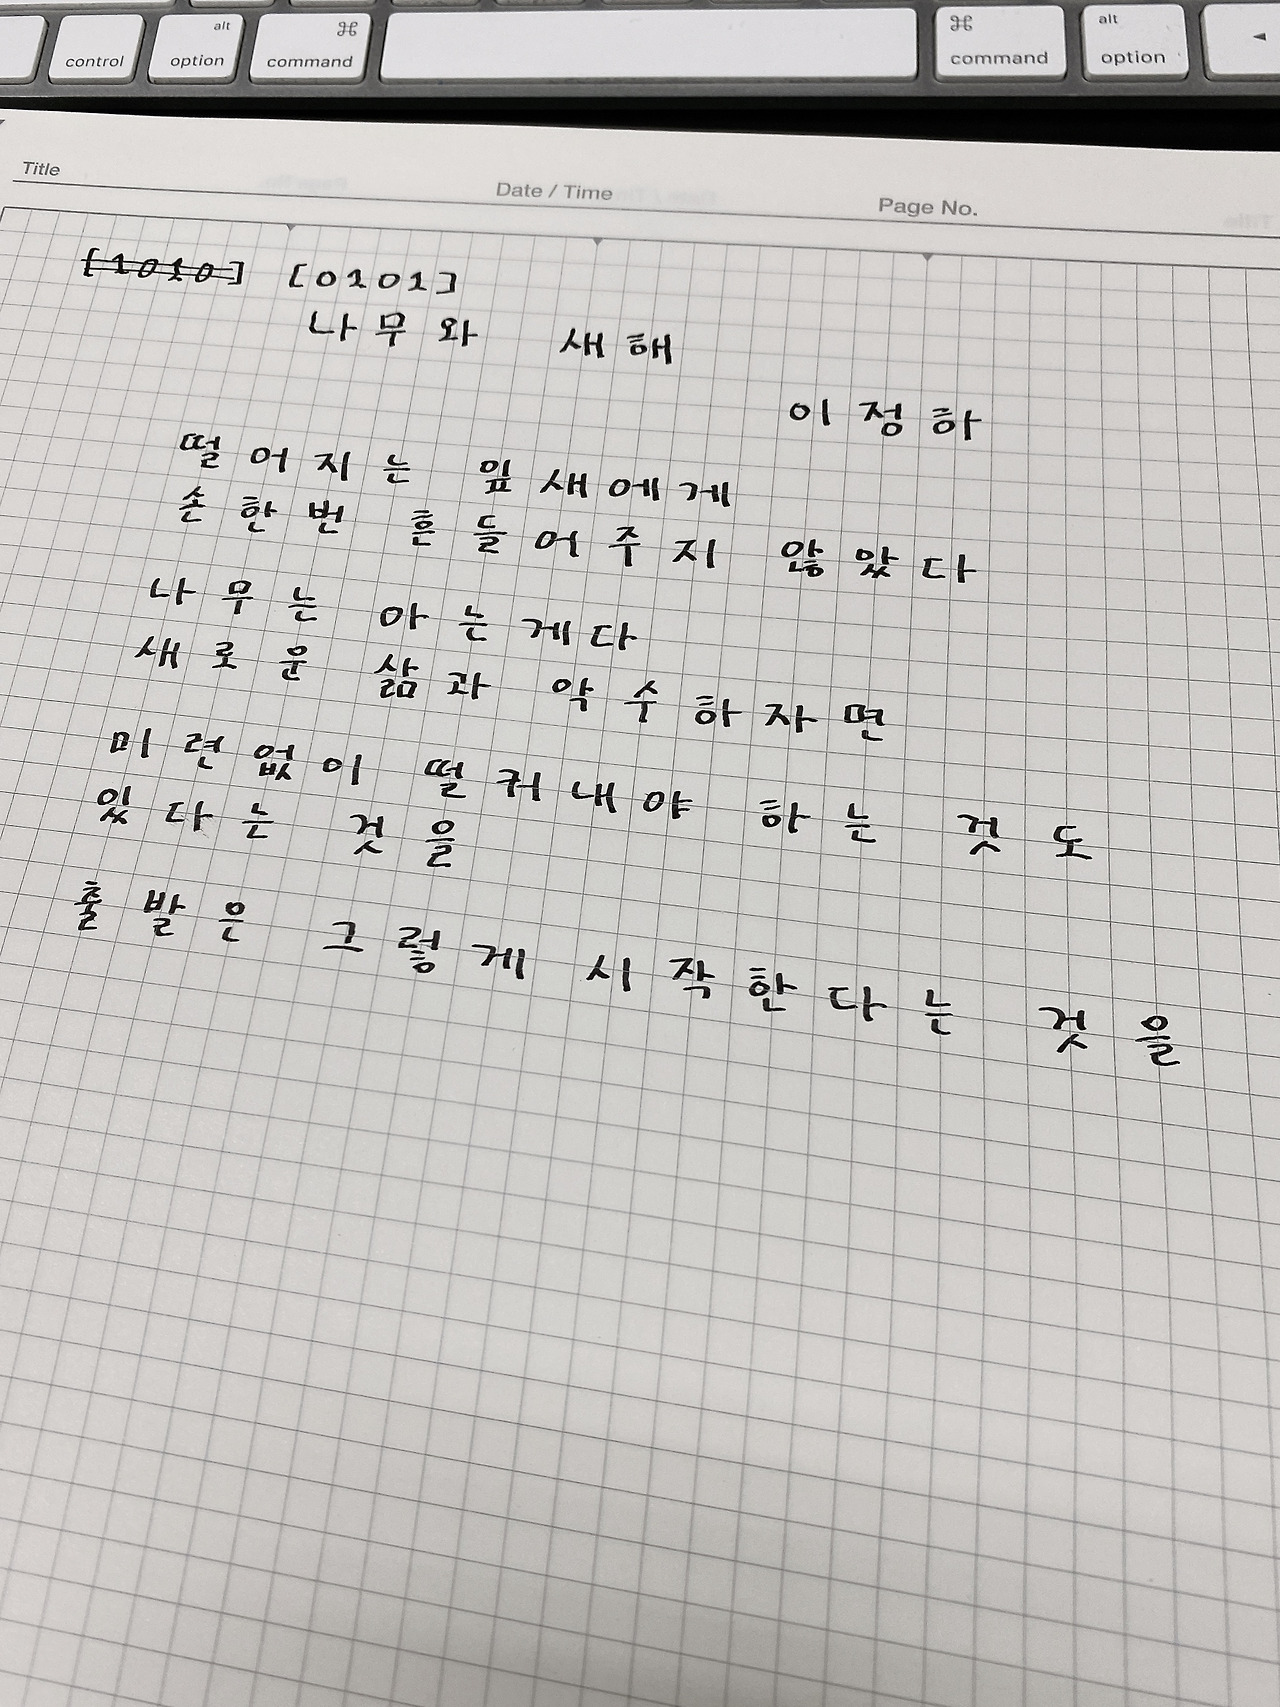 control alt option ⌘ command ⌘ command alt option ◄
Title Date / Time Page No.
[1010] [0101]
나무와 새해
이정하
떨어지는 잎새에게
손 한번 흔들어주지 않았다
나무는 아는게다
새로운 삶과 악수하자면
미련없이 떨궈내야 하는 것도
있다는 것을
출발은 그렇게 시작한다는 것을